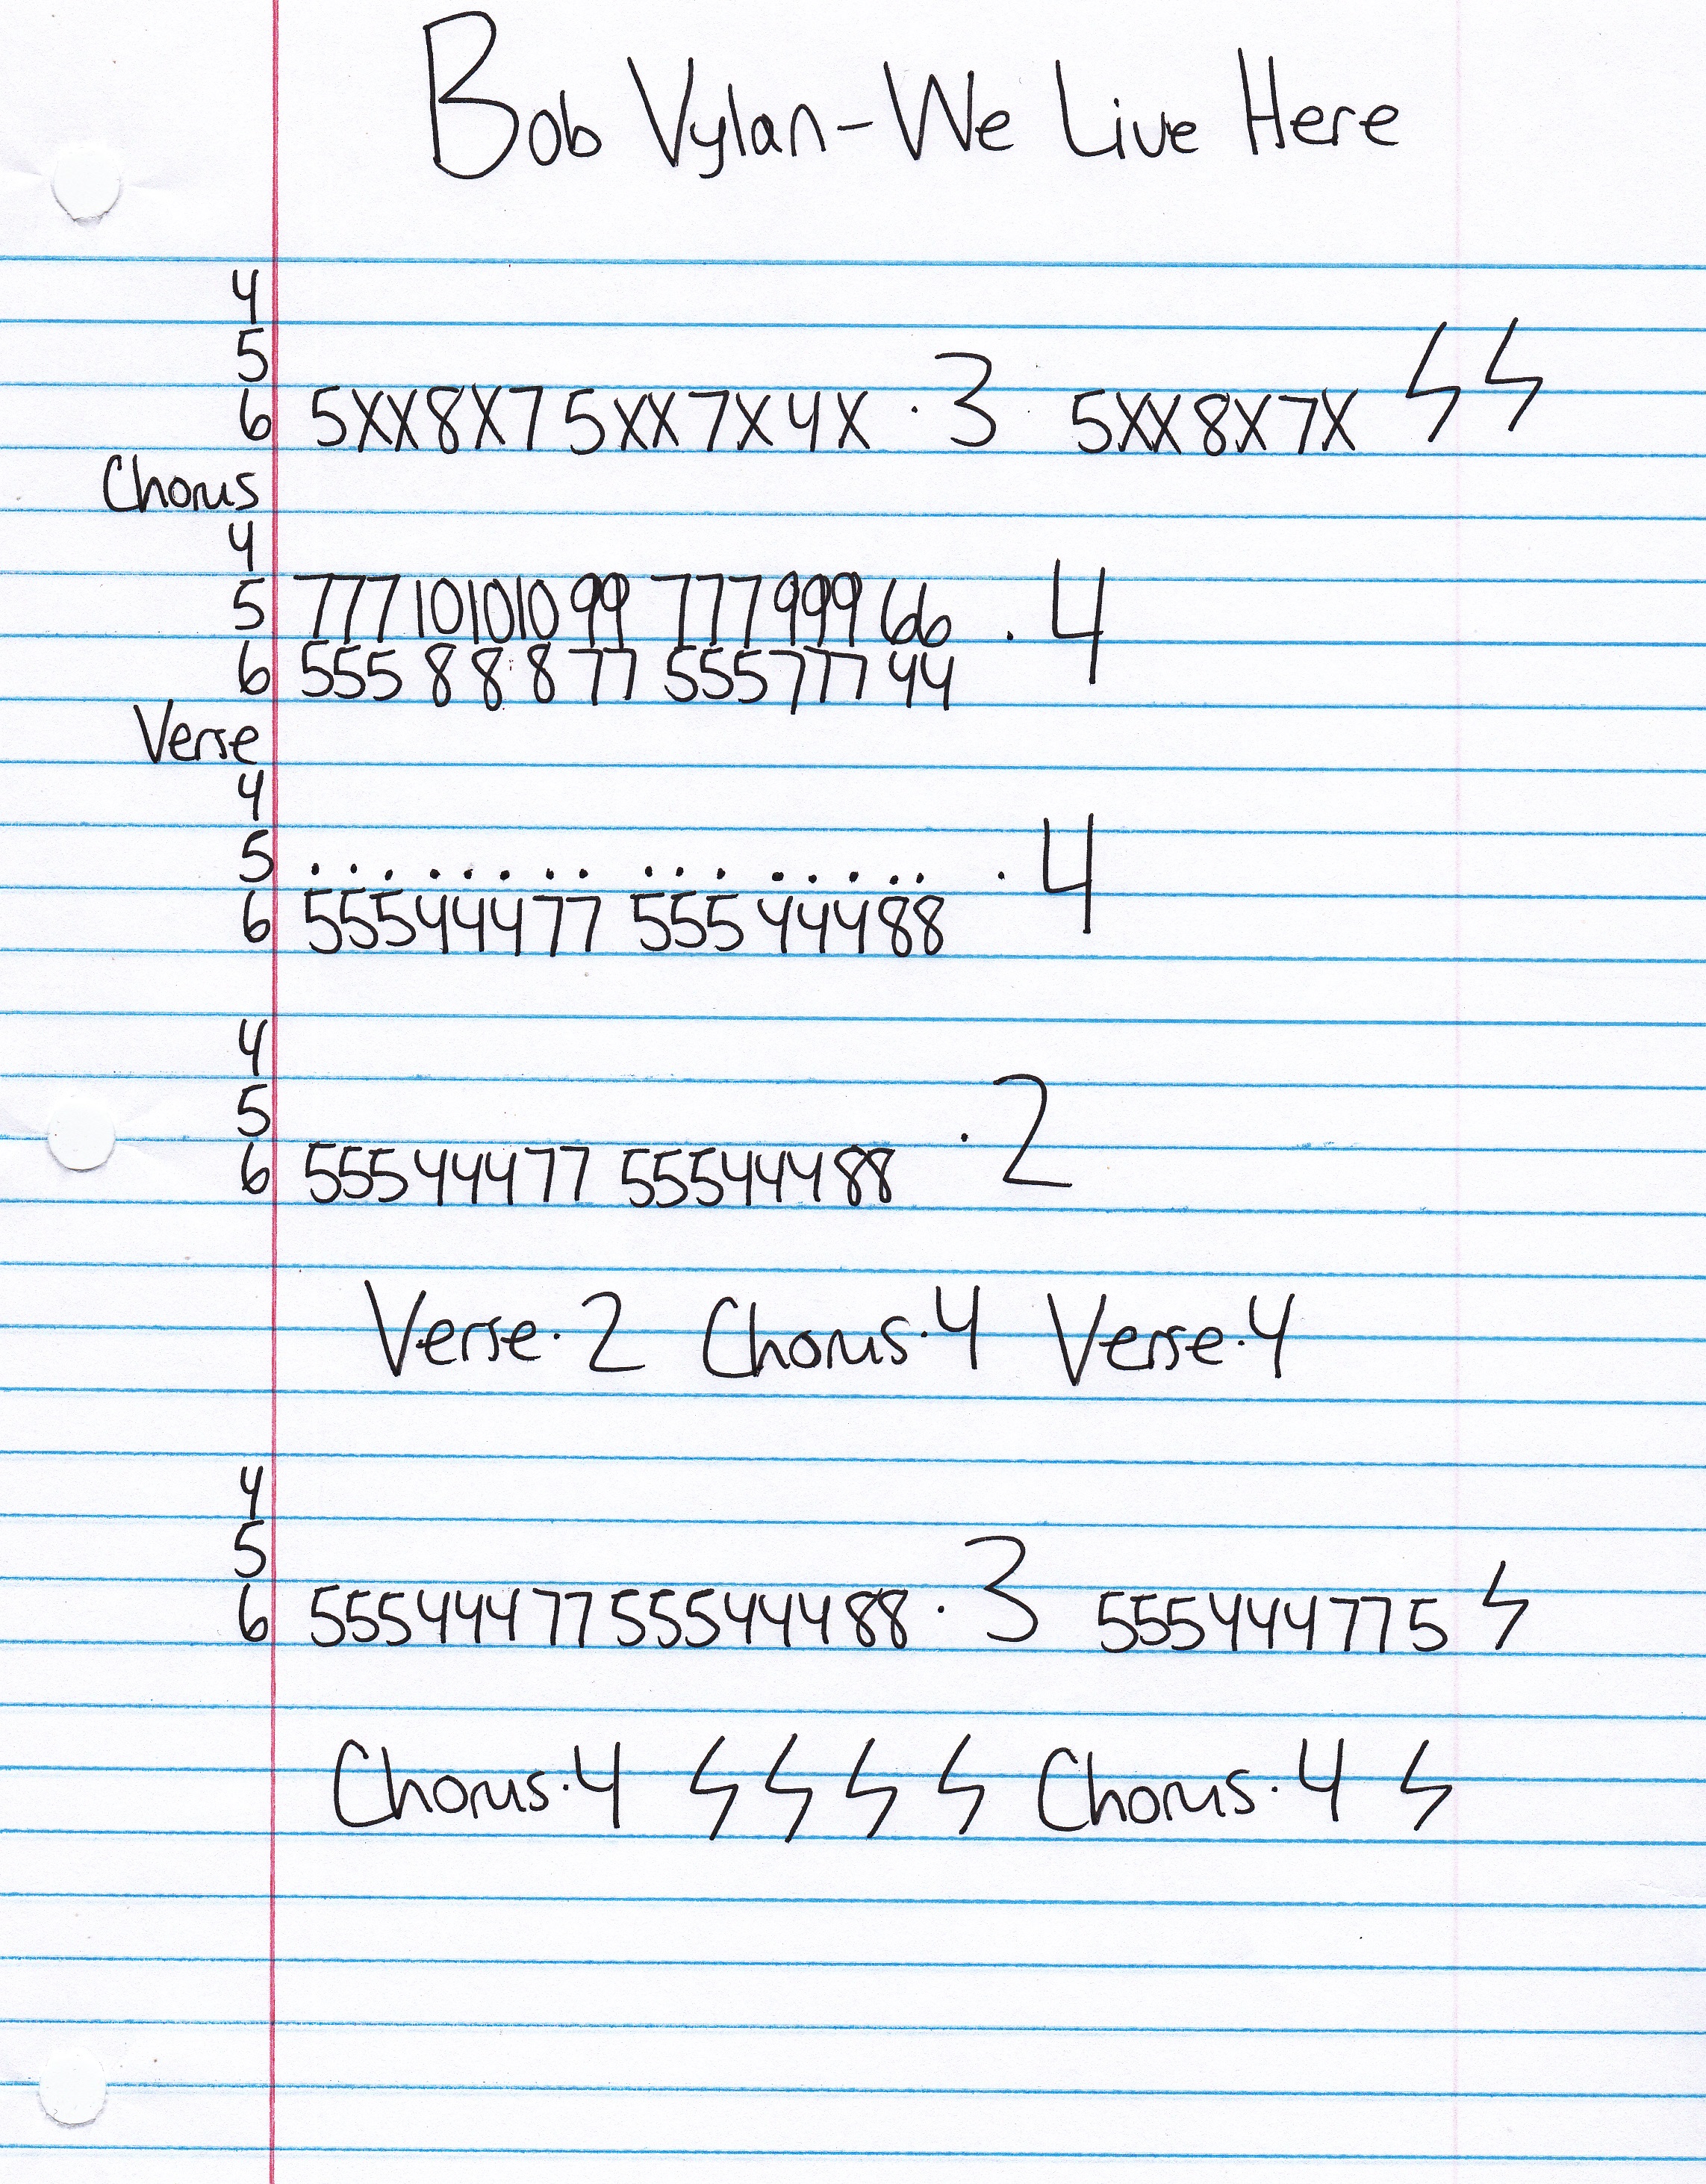 Bob Vylan-We Live Here
4
5
6 5XX8X7 5XX7X4X · 3 5XX8X7X ϟ ϟ
Chorus
4
5 777101010 99 777999 66 · 4
6 555 8 8 8 77 555777 44
Verse
4
5 . . . . . . . . . . . . . . . . · 4
6 55544477 555 44488
4
5
6 55544477 55544488 · 2
Verse·2 Chorus·4 Verse·4
4
5
6 5554447755544488 · 3 555444775 ϟ
Chorus·4 ϟ ϟ ϟ ϟ Chorus·4 ϟ